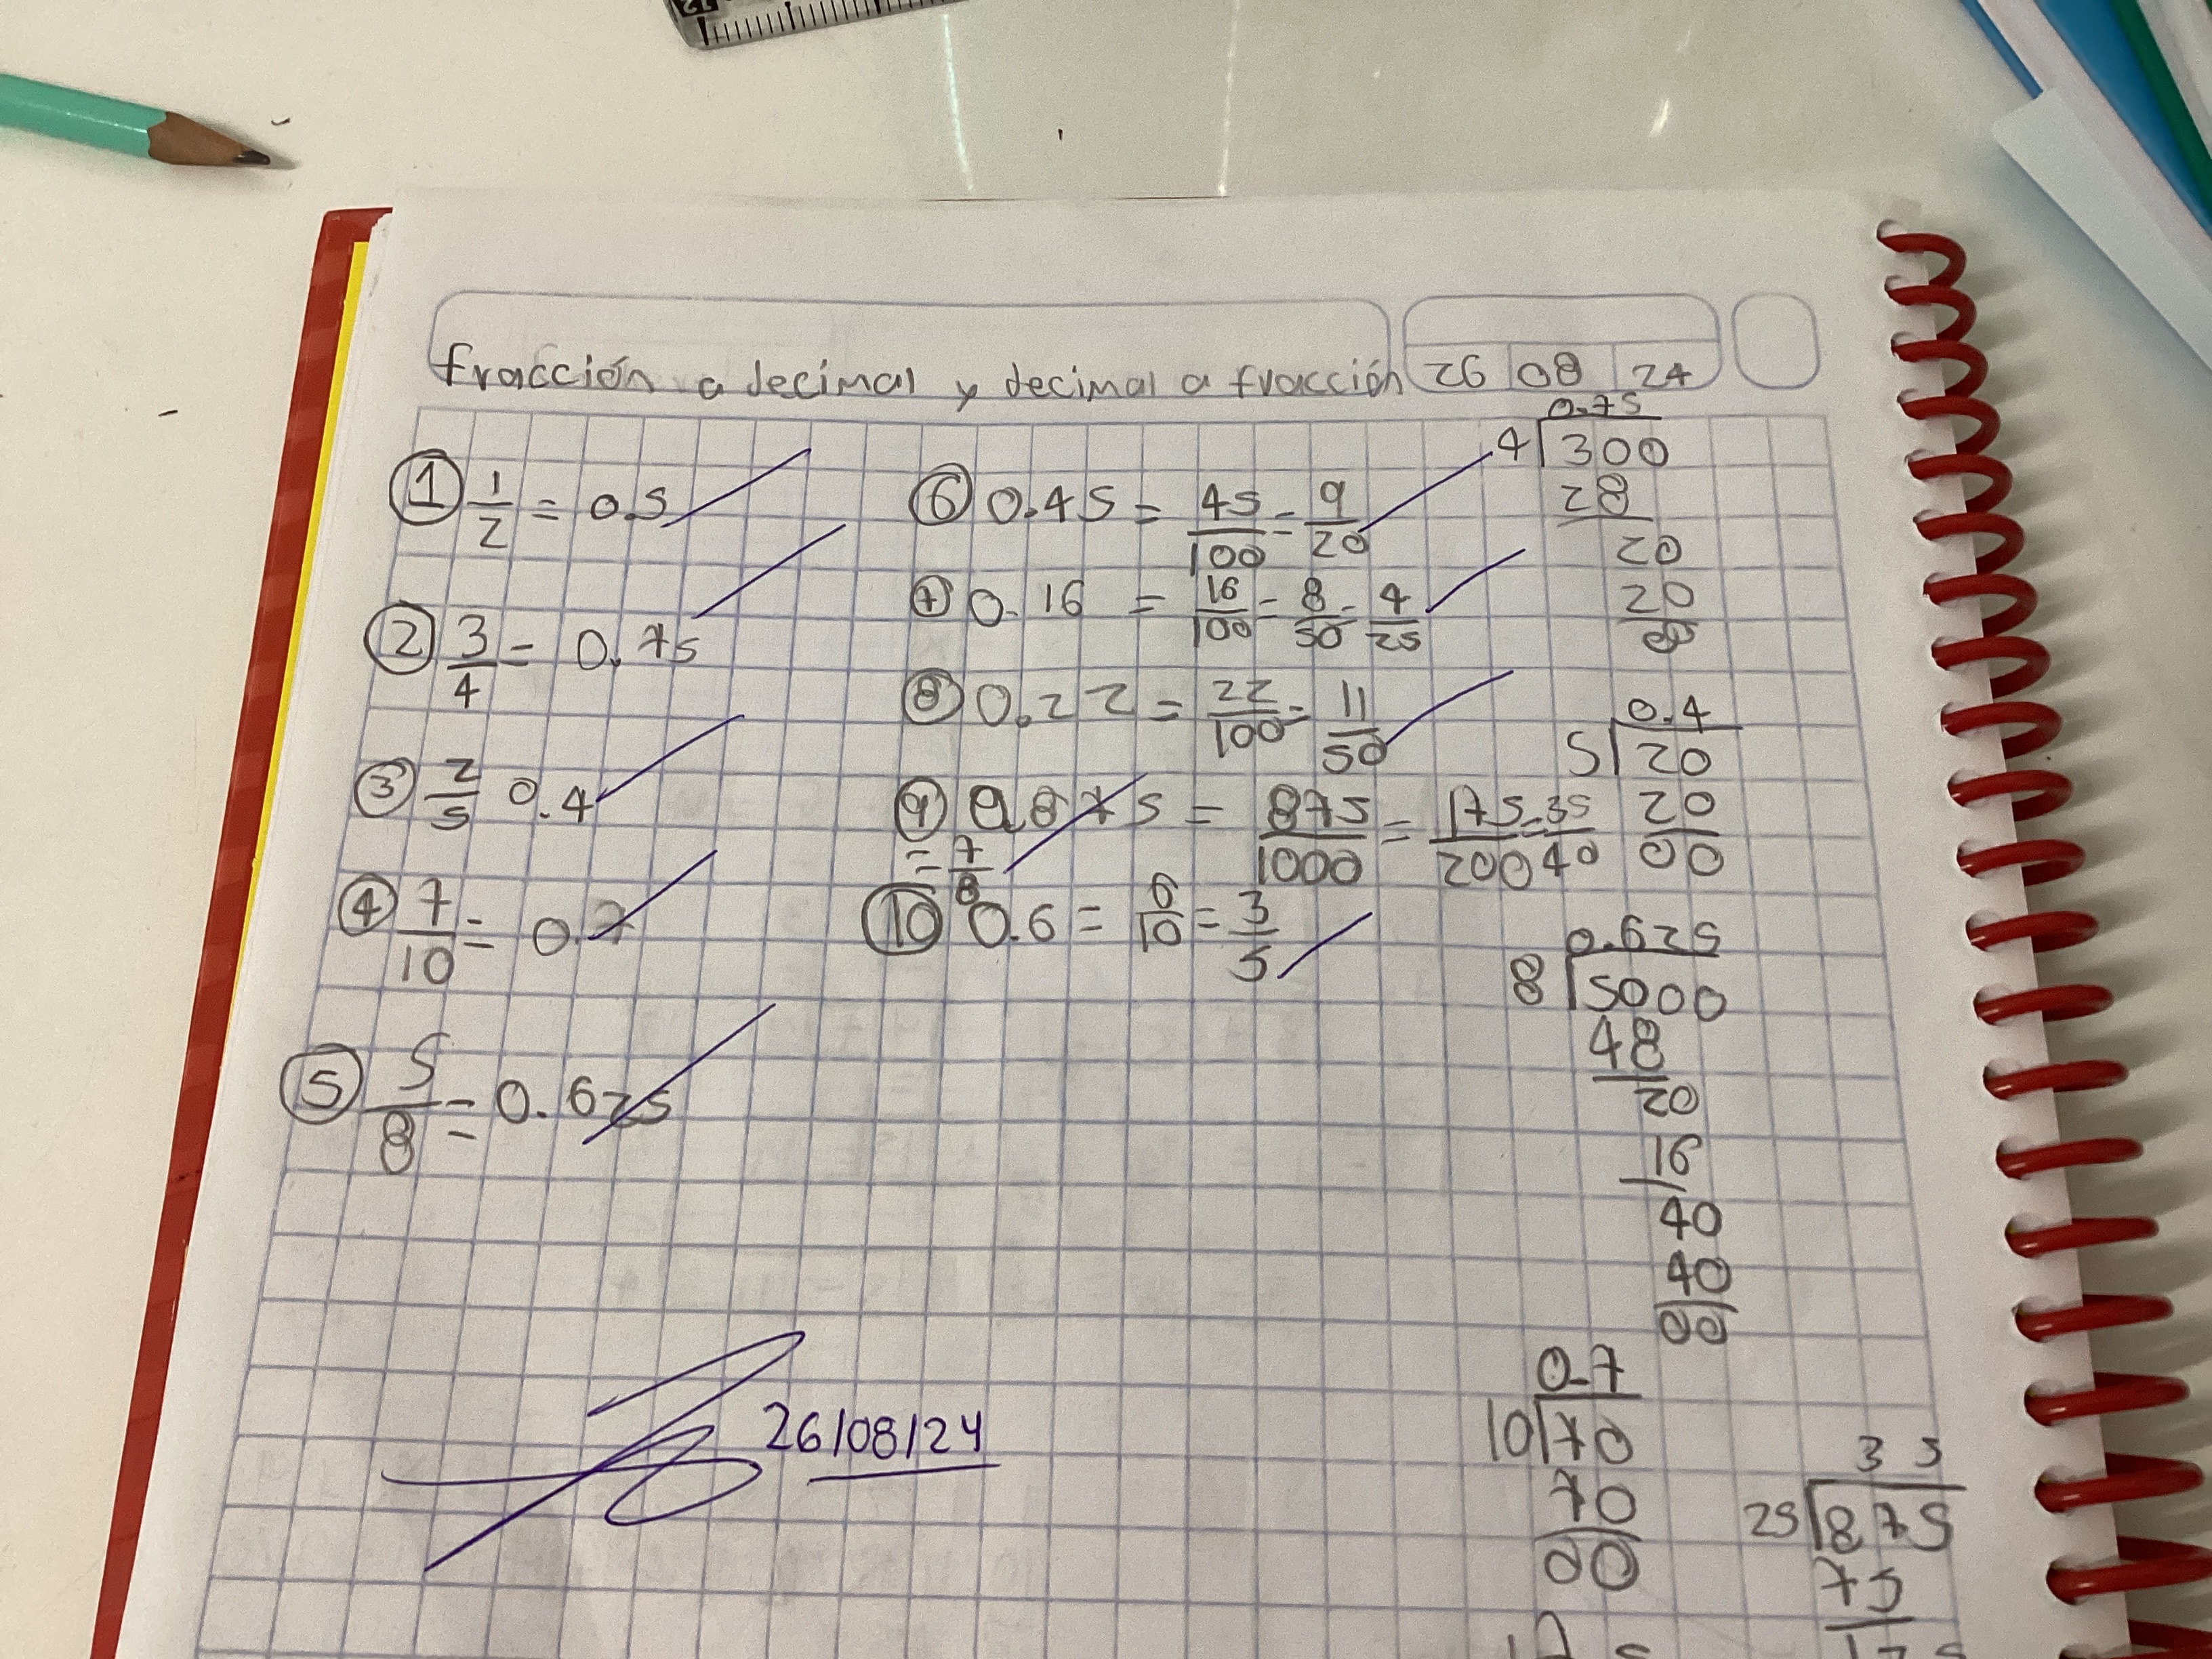 fracción a decimal y decimal a fracción 26 08 24
① 1/2 = 0.5
② 3/4 = 0.75
③ 2/5 0.4
④ 7/10 = 0.7
⑤ 5/8 = 0.625
⑥ 0.45 = 45/100 = 9/20
⑦ 0.16 = 16/100 = 8/50 = 4/25
⑧ 0.22 = 22/100 = 11/50
⑨ 0.875 = 875/1000 = 175/200 = 35/40
= 7/8
⑩ 0.6 = 6/10 = 3/5
0.75
4 300
28
20
20
00
0.4
5 20
20
00
0.625
8 5000
48
20
16
40
40
00
0.7
10 70
70
00
35
25 875
75
26/08/24